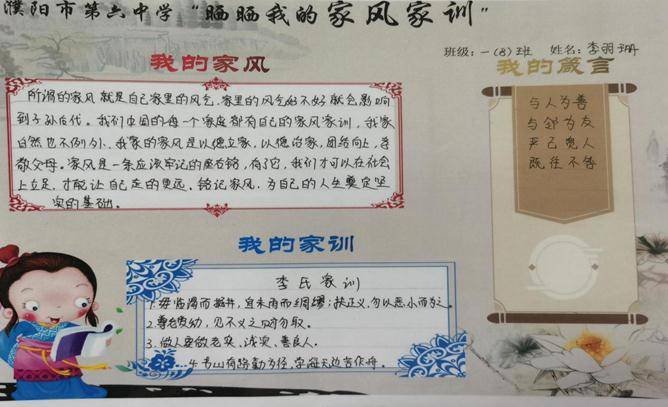 濮阳市第六中学“晒晒我的家风家训”
班级：一(8)班 姓名：李羽珊
我的家风
所谓的家风就是自己家里的风气,家里的风气好不好就会影响
到子孙后代。我们中国的每一个家庭都有自己的家风家训，我家
自然也不例外。我家的家风是以德立家，以德治家，团结向上，孝
敬父母。家风是一条应该牢记的座右铭，有了它，我们才可以在社会
上立足，才能让自己走的更远。铭记家风，为自己的人生奠定坚
实的基础。
我的箴言
与人为善
与邻为友
严己宽人
既往不咎
我的家训
李氏家训
1.毋临渴而掘井，宜未雨而绸缪；扶正义，勿以恶小而为之。
2.尊老爱幼，见不义之财勿取。
3.做人要做老实、诚实、善良人。
4.书山有路勤为径，学海无边苦作舟。